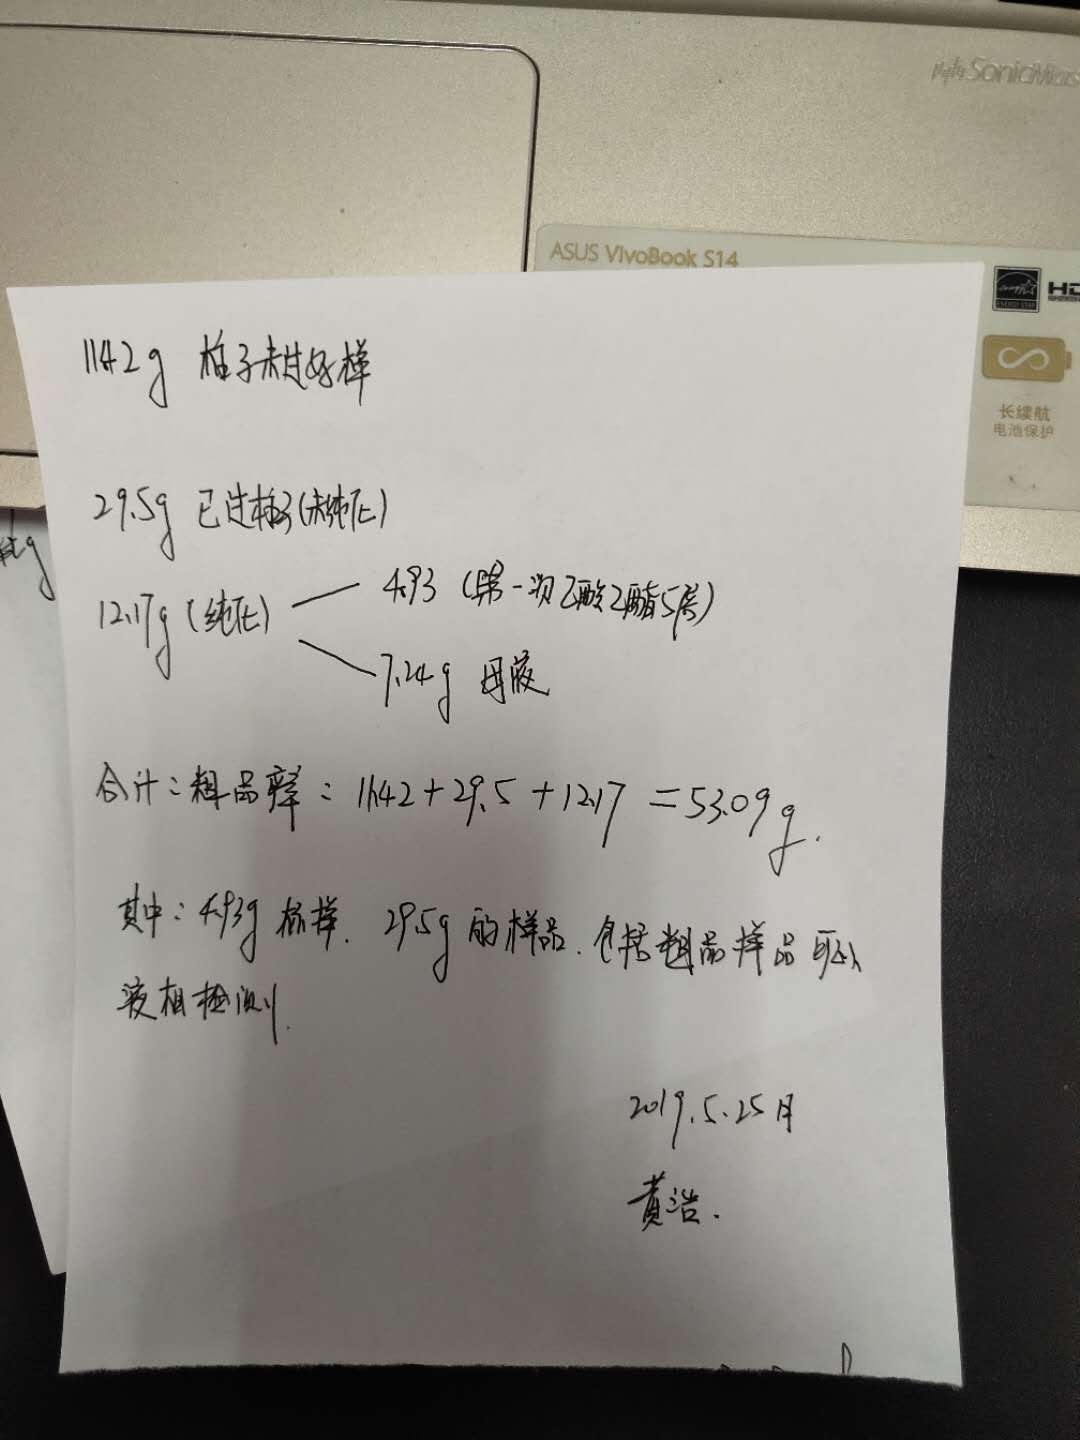 SonicMas
ASUS VivoBook S14
ENERGY STAR
HD
长续航
电池保护
11.42g 柱子未过好样
29.5g 已过柱子(未纯化)
12.17g (纯化)
4.93 (第一次乙酸乙酯5倍)
7.24g 母液
合计:粗品率:11.42+29.5+12.17=53.09g.
其中:4.93g标样.29.5g的样品.包括粗品样品可以
液相检测.
2019.5.25日
黄浩.